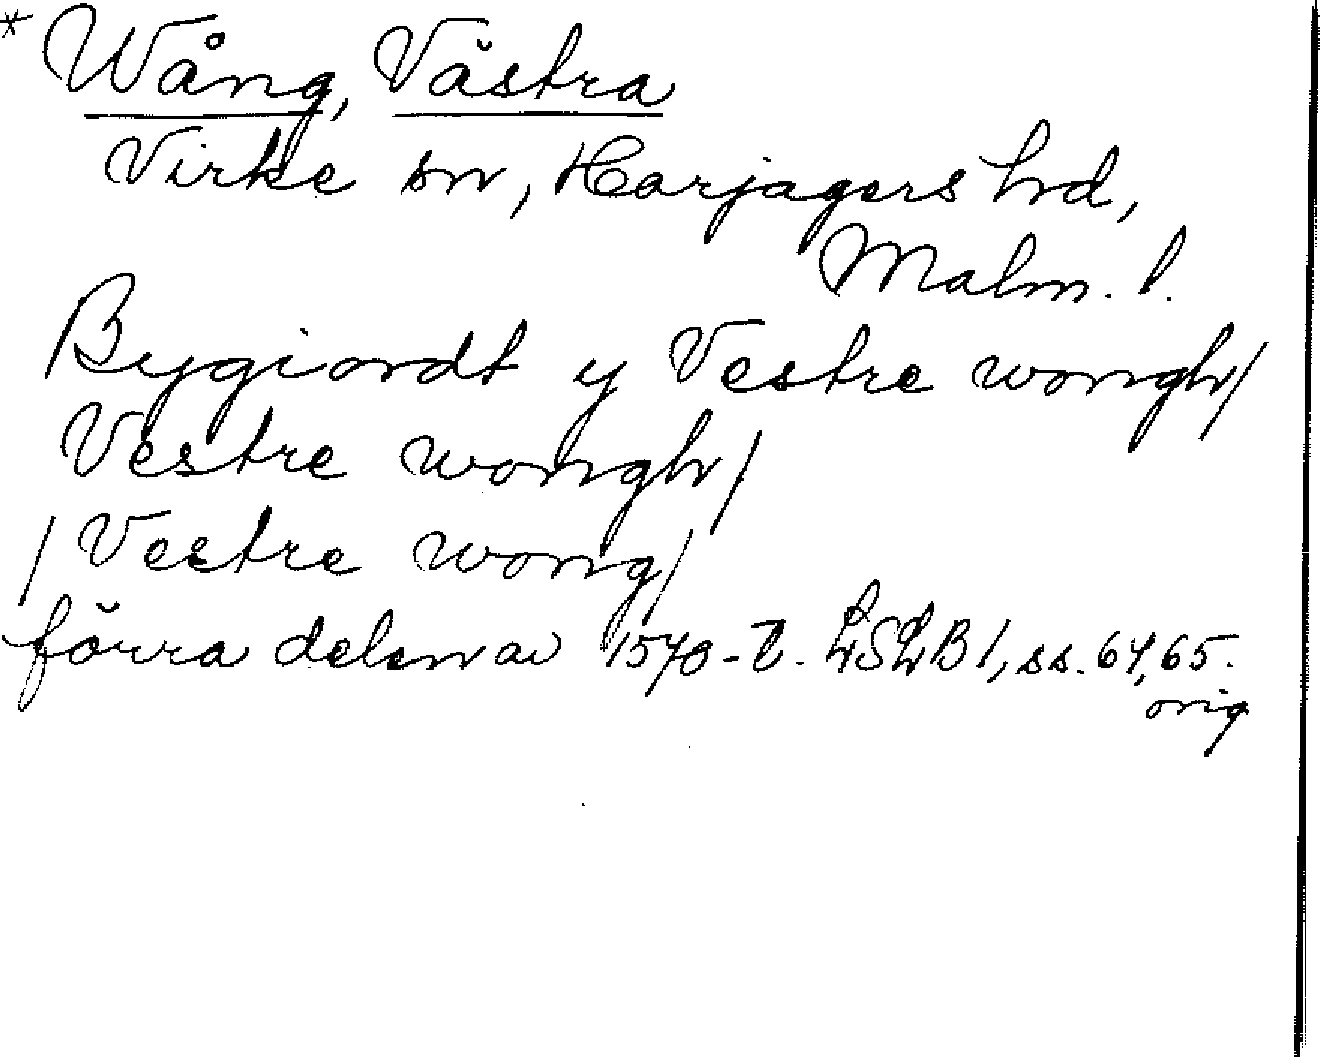 * Wång, Västra
Virke sn, Harjagers hd,
Malm. l.
Bygiordt y Vestre wongh/
Vestre wongh/
/Vestre wong/
förra delen av 1570-t. LSLB 1, ss. 64, 65.
orig